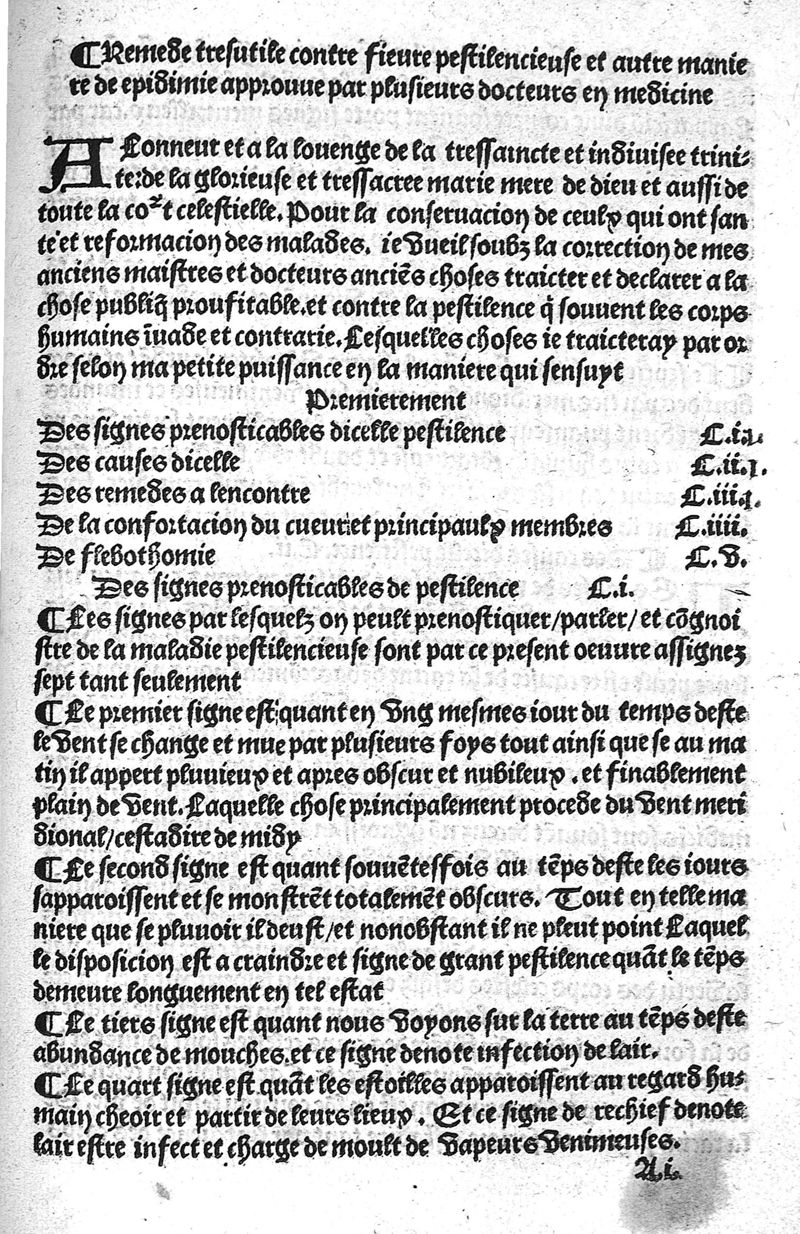 ¶Remede tresutile contre fieure pestilencieuse et autre manie
re de epidimie approuue par plusieurs docteurs en medicine
A Lonneur et a la louenge de la tressaincte et indiuisee trini⸗
te: de la glorieuse et tressacree marie mere de dieu et aussi de
toute la coᷣt celestielle. Pour la conseruacion de ceulx qui ont san
te et reformacion des malades. ie vueil soubz la correction de mes
anciens maistres et docteurs anciẽs choses traicter et declarer a la
chose publiq̃ proufitable. et contre la pestilence q̃ souuent les corps
humains ĩuade et contrarie. Lesquelles choses ie traicteray par or
dre selon ma petite puissance en la maniere qui sensuyt
Premierement
Des signes prenosticables dicelle pestilence C.i.
Des causes dicelle C.ii.
Des remedes a lencontre C.iii.
De la confortacion du cueur et principaulx membres C.iiii.
De flebothomie C.v.
Des signes prenosticables de pestilence C.i.
¶Les signes par lesquelz on peult prenostiquer/parler/ et cõgnoi
stre de la maladie pestilencieuse sont par ce present oeuure assignez
sept tant seulement
¶Le premier signe est quant en vng mesmes iour du temps deste
le vent se change et mue par plusieurs foys tout ainsi que se au ma
tin il appert pluuieux et apres obscur et nubileux. et finablement
plain de vent. Laquelle chose principalement procede du vent meri
dional/cestadire de midy
¶Le second signe est quant souuẽtessois au tẽps deste les iours
sapparoissent et se monstrẽt totalemẽt obscurs. Tout en telle ma
niere que se pluuoir il deust/et nonobstant il ne pleut point Laquel
le disposicion est a craindre et signe de grant pestilence quãt le tẽps
demeure longuement en tel estat
¶Le tiers signe est quant nous voyons sur la terre au tẽps deste
abundance de mouches. et ce signe denote infection de lair.
¶Le quart signe est quãt les estoilles apparoissent au regard hu⸗
main cheoir et partir de leurs lieux. Et ce signe de rechief denote
lair estre infect et charge de moult de vapeurs venimeuses.
A.i.